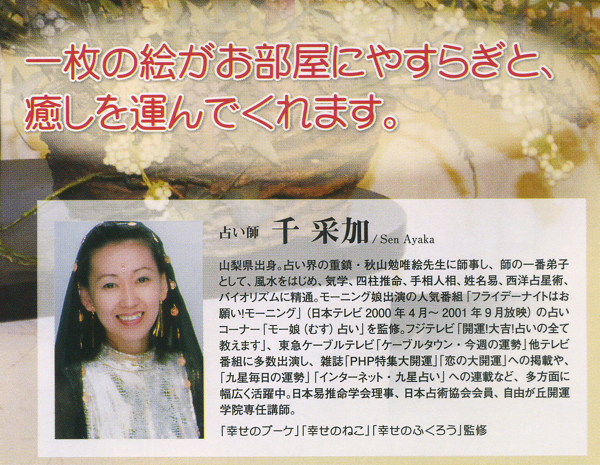 一枚の絵がお部屋にやすらぎと、
癒しを運んでくれます。
占い師 千 采加 / Sen Ayaka
山梨県出身。占い界の重鎮・秋山勉唯絵先生に師事し、師の一番弟子
として、風水をはじめ、気学、四柱推命、手相人相、姓名易、西洋占星術、
バイオリズムに精通。モーニング娘出演の人気番組「フライデーナイトはお
願い!モーニング」（日本テレビ 2000 年 4 月～ 2001 年 9 月放映）の占い
コーナー「モー娘（むす）占い」を監修。フジテレビ「開運!大吉!占いの全て
教えます」、東急ケーブルテレビ「ケーブルタウン・今週の運勢」他テレビ
番組に多数出演し、雑誌「PHP特集大開運」「恋の大開運」への掲載や、
「九星毎日の運勢」「インターネット・九星占い」への連載など、多方面に
幅広く活躍中。日本易推命学会理事、日本占術協会会員、自由が丘開運
学院専任講師。
「幸せのブーケ」「幸せのねこ」「幸せのふくろう」監修